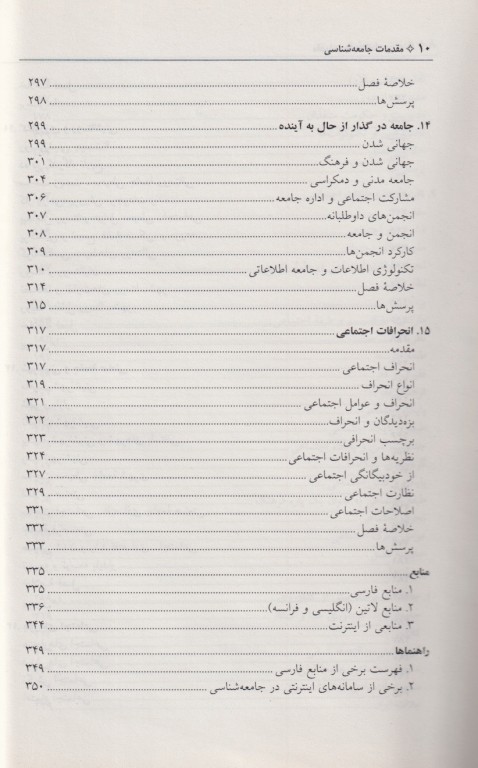 ۱۰ ❖ مقدمات جامعه‌شناسی
خلاصهٔ فصل ........ ۲۹۷
پرسش‌ها ........ ۲۹۸
۱۴. جامعه در گذار از حال به آینده ........ ۲۹۹
جهانی شدن ........ ۲۹۹
جهانی شدن و فرهنگ ........ ۳۰۱
جامعه مدنی و دمکراسی ........ ۳۰۴
مشارکت اجتماعی و اداره جامعه ........ ۳۰۶
انجمن‌های داوطلبانه ........ ۳۰۷
انجمن و جامعه ........ ۳۰۸
کارکرد انجمن‌ها ........ ۳۰۹
تکنولوژی اطلاعات و جامعه اطلاعاتی ........ ۳۱۰
خلاصهٔ فصل ........ ۳۱۴
پرسش‌ها ........ ۳۱۵
۱۵. انحرافات اجتماعی ........ ۳۱۷
مقدمه ........ ۳۱۷
انحراف اجتماعی ........ ۳۱۷
انواع انحراف ........ ۳۱۹
انحراف و عوامل اجتماعی ........ ۳۲۱
بزه‌دیدگان و انحراف ........ ۳۲۲
برچسب انحرافی ........ ۳۲۳
نظریه‌ها و انحرافات اجتماعی ........ ۳۲۴
از خودبیگانگی اجتماعی ........ ۳۲۷
نظارت اجتماعی ........ ۳۲۹
اصلاحات اجتماعی ........ ۳۳۱
خلاصهٔ فصل ........ ۳۳۲
پرسش‌ها ........ ۳۳۳
منابع ........ ۳۳۵
۱. منابع فارسی ........ ۳۳۵
۲. منابع لاتین (انگلیسی و فرانسه) ........ ۳۳۶
۳. منابعی از اینترنت ........ ۳۴۴
راهنماها ........ ۳۴۹
۱. فهرست برخی از منابع فارسی ........ ۳۴۹
۲. برخی از سامانه‌های اینترنتی در جامعه‌شناسی ........ ۳۵۰